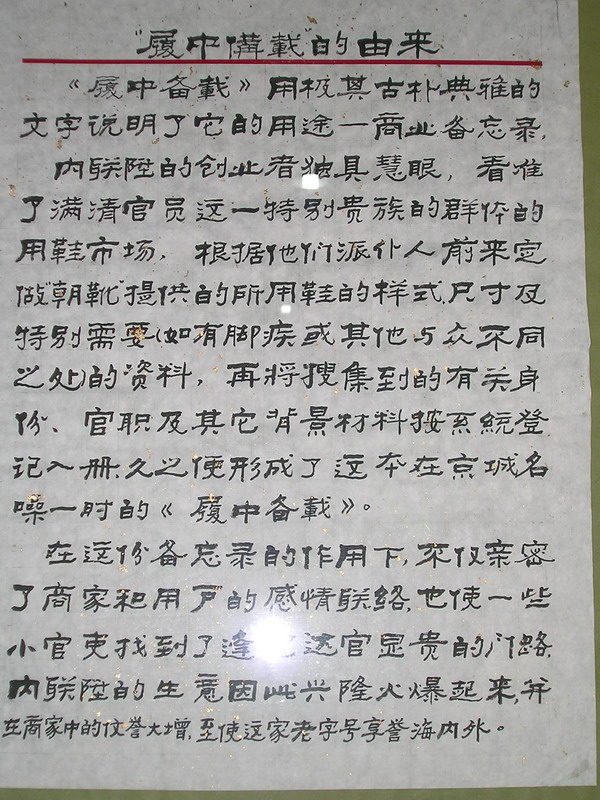 "履中備載"的由来
《履中备载》用极其古朴典雅的
文字说明了它的用途一商业备忘录,
内联陞的创业者独具慧眼，看准
了满清官员这一特别贵族的群体的
用鞋市场，根据他们派仆人前来定
做"朝靴"提供的所用鞋的样式,尺寸及
特别需要(如有脚疾或其他与众不同
之处)的资料，再将搜集到的有关身
份、官职及其它背景材料按系統登
记入册,久之便形成了这本在京城名
噪一时的《履中备载》。
在这份备忘录的作用下,不仅亲密
了商家和用户的感情联络,也使一些
小官吏找到了逢达官显贵的门路,
内联陞的生意因此兴隆火爆起来,并
在商家中的仗誉大增,至使这家老字号享誉海内外。